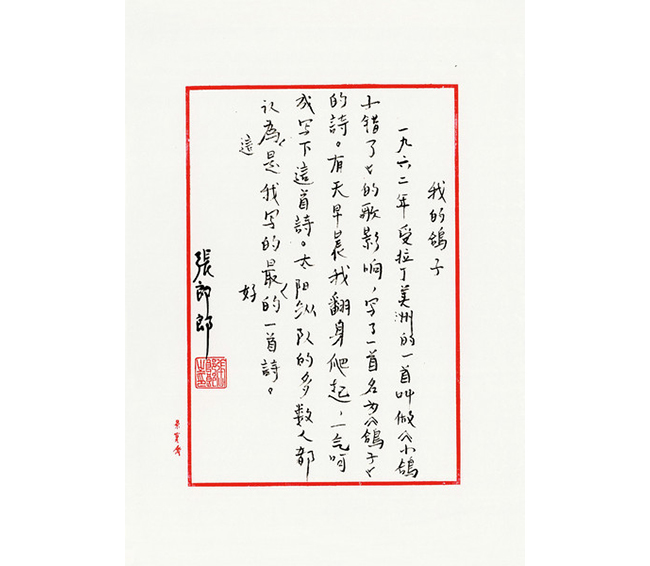 我的鴿子
一九六二年受拉丁美洲的一首叫做《小鴿
子错了》的歌影响，写了一首名为《鴿子》
的詩。有天早晨我翻身爬起，一气呵
成写下這首詩。太阳纵队的多數人都
认為這是我写的最好的一首詩。
張郎郎
荣宝斋